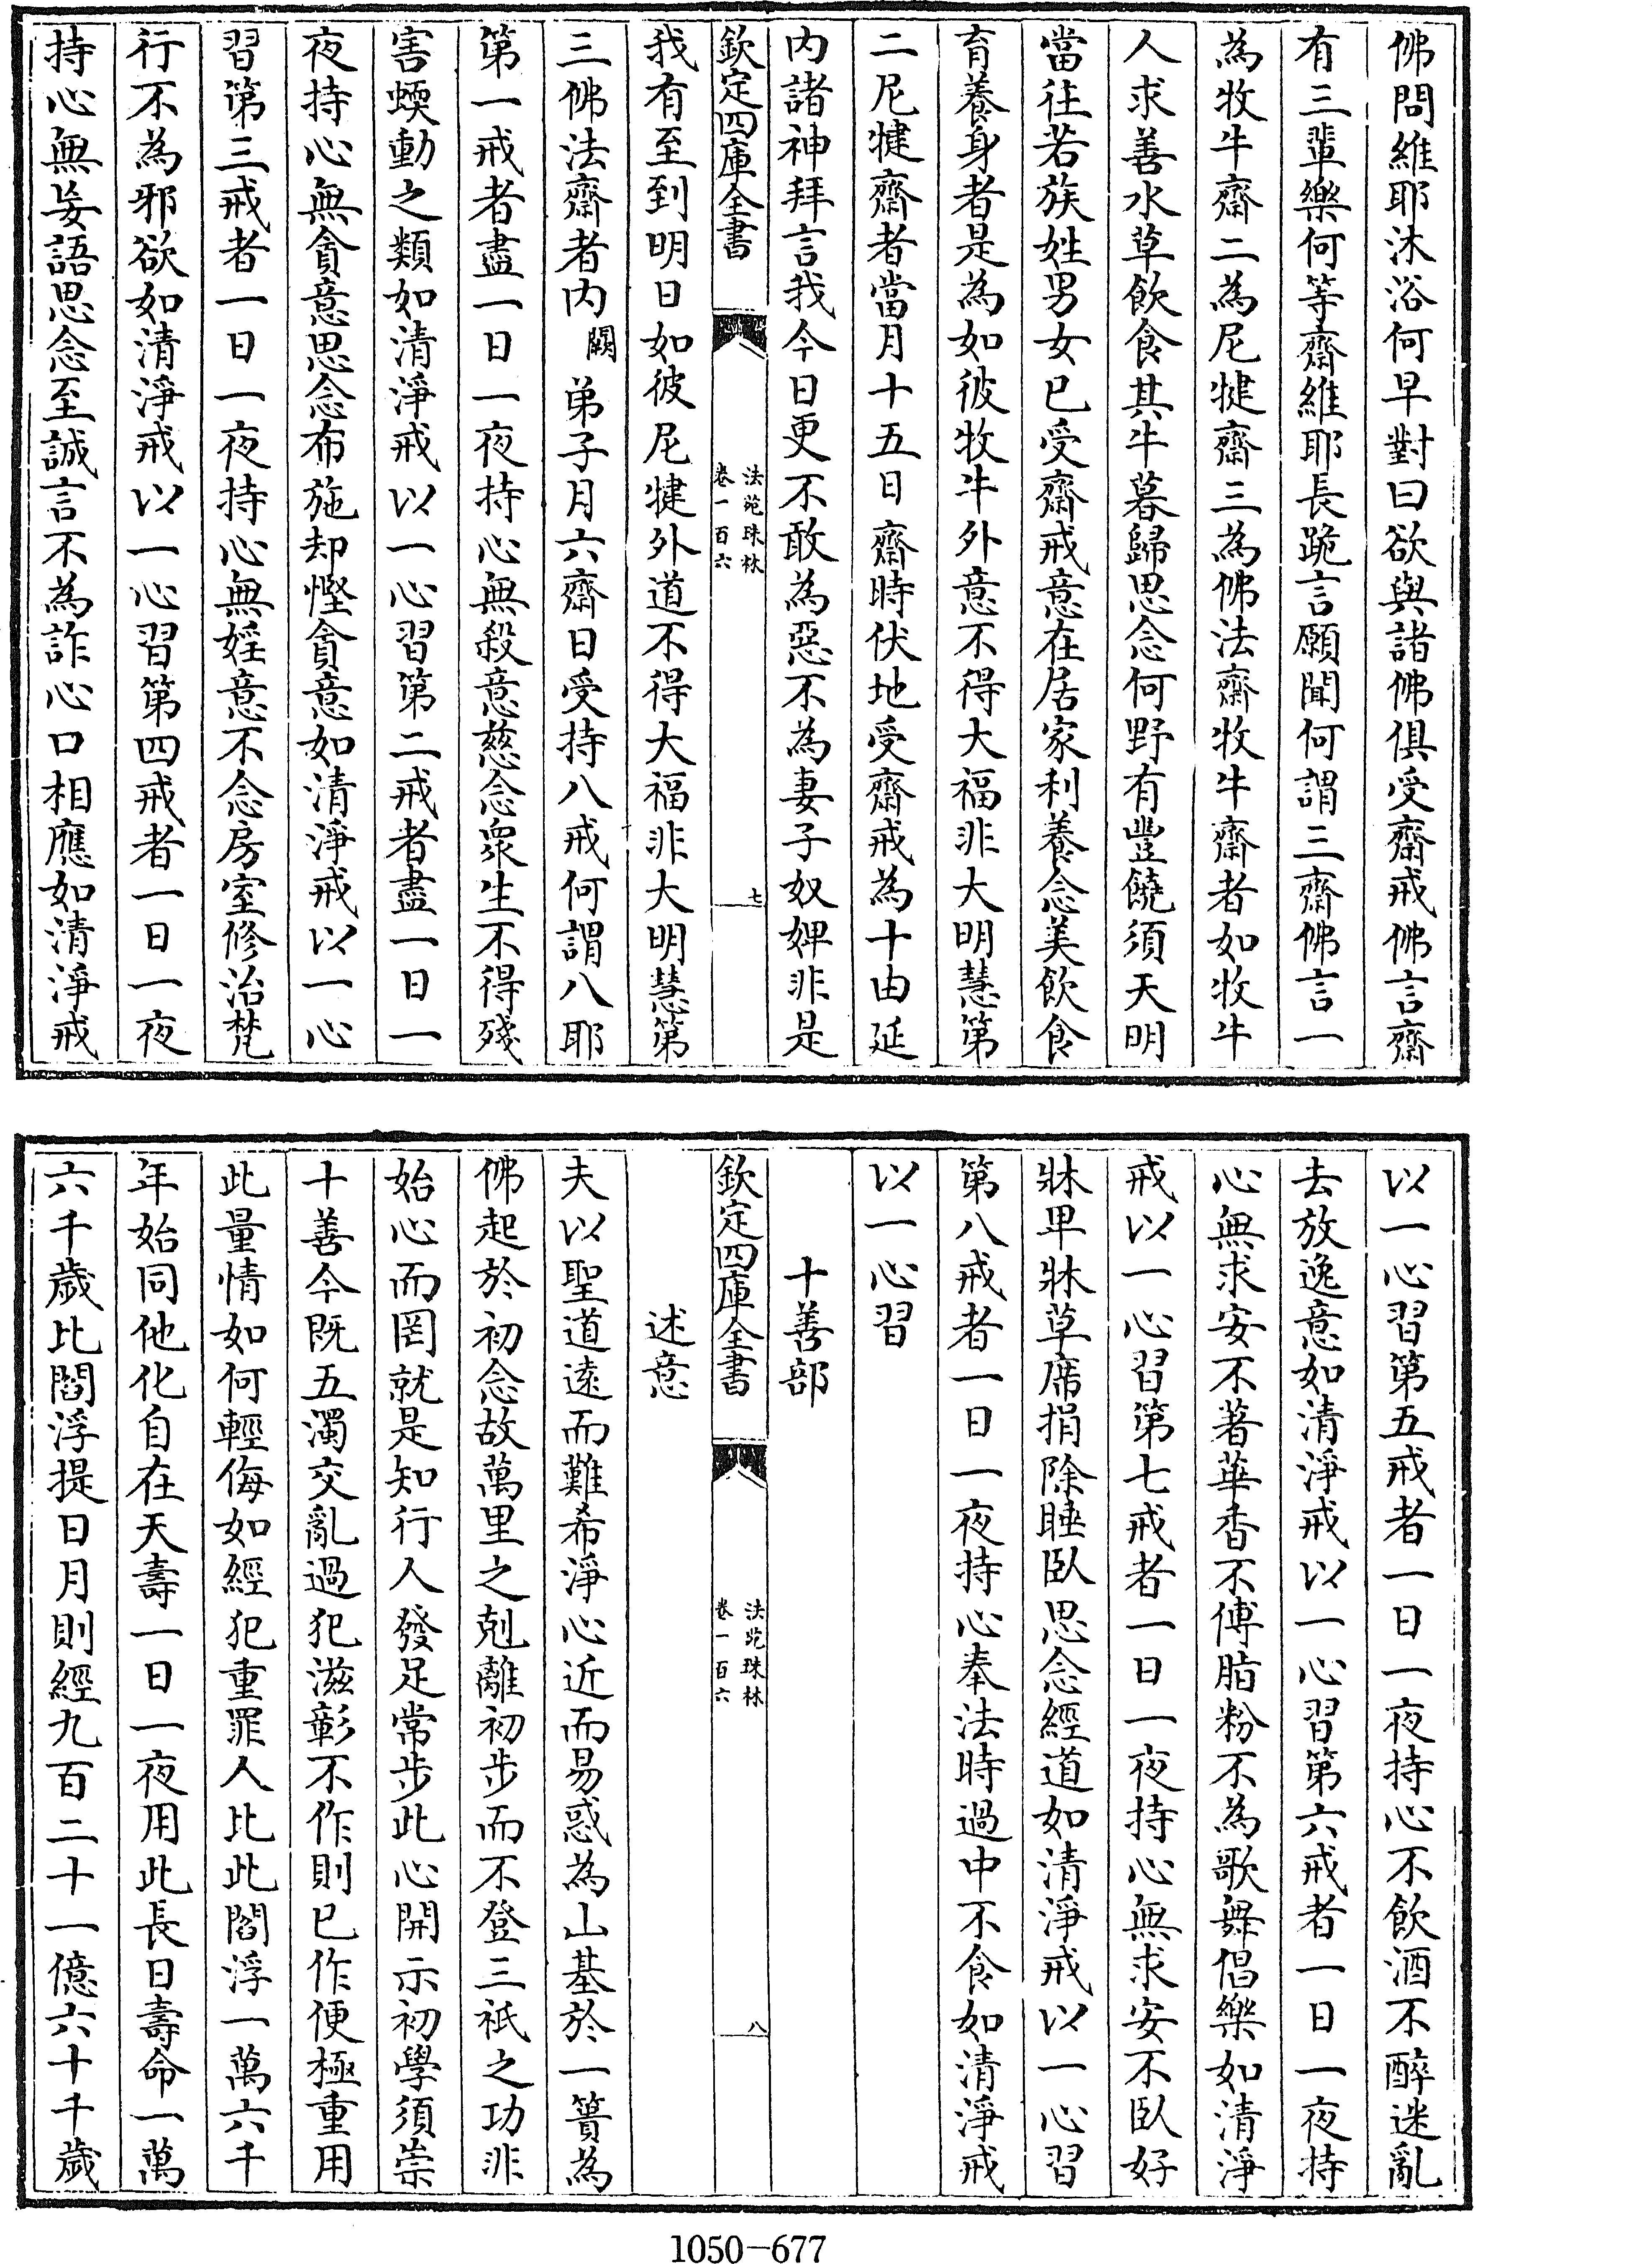 佛問維耶沐浴何早對曰欲與諸佛俱受齋戒佛言齋
有三輩樂何等齋維耶長跪言願聞何謂三齋佛言一
為牧牛齋二為尼犍齋三為佛法齋牧牛齋者如牧牛
人求善水草飲食其牛暮歸思念何野有豐饒須天明
當往若族姓男女已受齋戒意在居家利養念美飲食
育養身者是為如彼牧牛外意不得大福非大明慧第
二尼犍齋者當月十五日齋時伏地受齋戒為十由延
内諸神拜言我今日更不敢為惡不為妻子奴婢非是
欽定四庫全書
法苑珠林
卷一百六
七
我有至到明日如彼尼犍外道不得大福非大明慧第
三佛法齋者内闕弟子月六齋日受持八戒何謂八耶
第一戒者盡一日一夜持心無殺意慈念衆生不得殘
害蝡動之類如清淨戒以一心習第二戒者盡一日一
夜持心無貪意思念布施却慳貪意如清淨戒以一心
習第三戒者一日一夜持心無婬意不念房室修治梵
行不為邪欲如清淨戒以一心習第四戒者一日一夜
持心無妄語思念至誠言不為詐心口相應如清淨戒
以一心習第五戒者一日一夜持心不飲酒不醉迷亂
去放逸意如清淨戒以一心習第六戒者一日一夜持
心無求安不著華香不傅脂粉不為歌舞倡樂如清淨
戒以一心習第七戒者一日一夜持心無求安不臥好
牀卑牀草席捐除睡臥思念經道如清淨戒以一心習
第八戒者一日一夜持心奉法時過中不食如清淨戒
以一心習
十善部
欽定四庫全書
法苑珠林
卷一百六
八
述意
夫以聖道遠而難希淨心近而易惑為山基於一簣為
佛起於初念故萬里之剋離初步而不登三祇之功非
始心而罔就是知行人發足常步此心開示初學須崇
十善今既五濁交亂過犯滋彰不作則已作便極重用
此量情如何輕侮如經犯重罪人比此閻浮一萬六千
年始同他化自在天壽一日一夜用此長日壽命一萬
六千歲比閻浮提日月則經九百二十一億六十千歲
1050-677